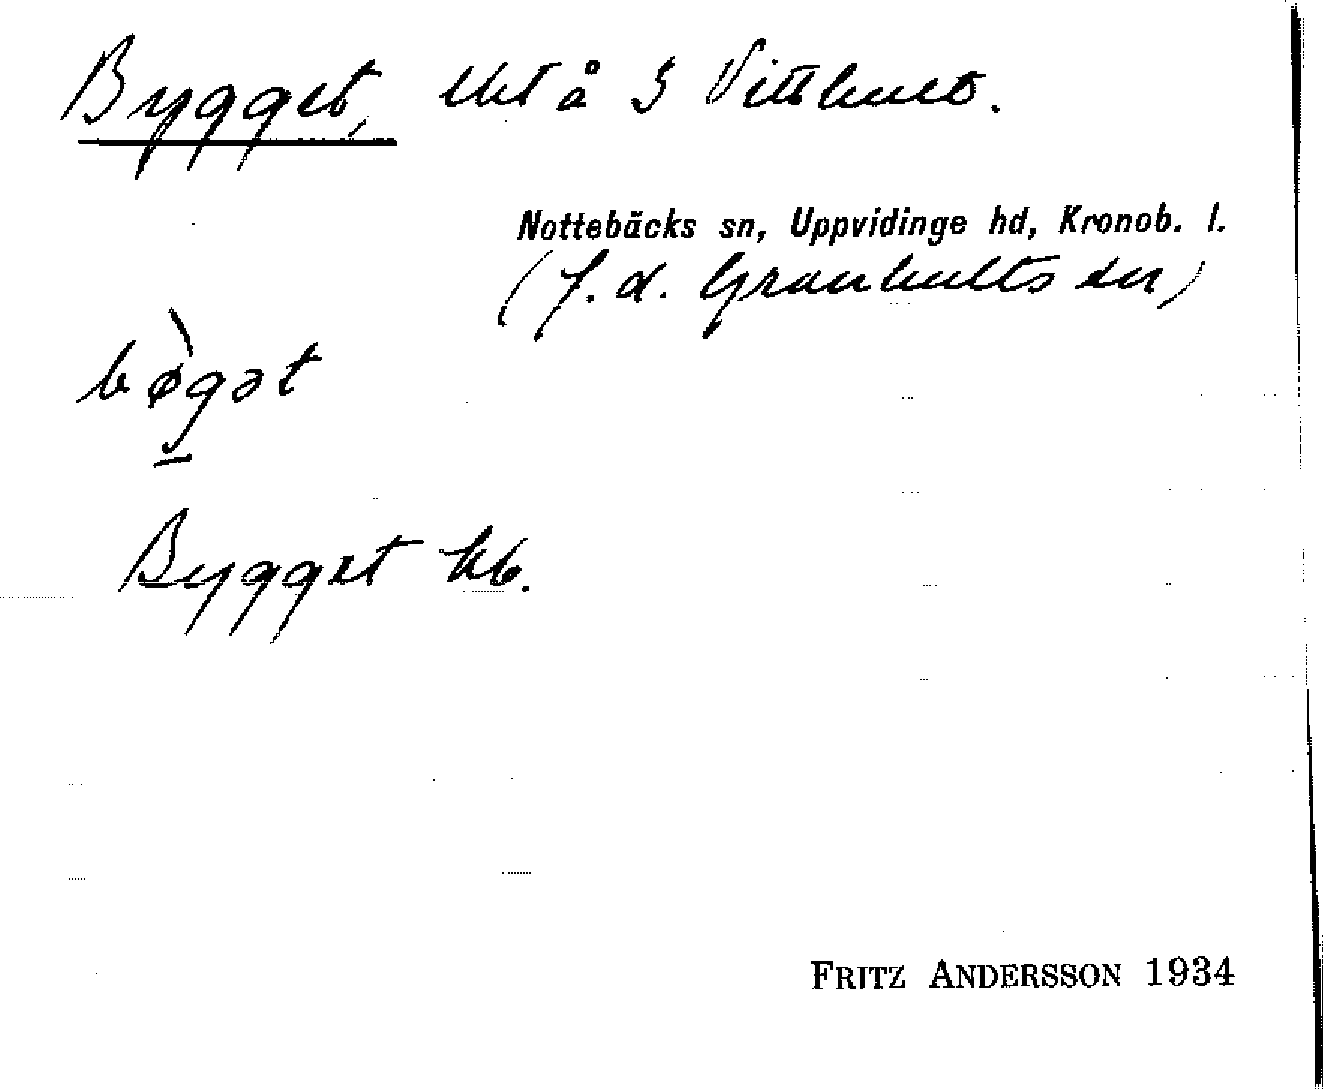 Bygget, lht å S Vithult.
Nottebäcks sn, Uppvidinge hd, Kronob. l.
(f. d. Granhults sn)
bøgət
Bygget kb.
FRITZ ANDERSSON 1934